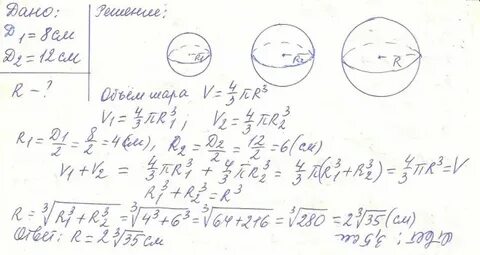 Дано: Решение:
D₁ = 8 см
D₂ = 12 см
R₁ R₂ R
R - ?
Объём шара V = 4/3 πR³
V₁ = 4/3 πR₁³; V₂ = 4/3 πR₂³
R₁ = D₁/2 = 8/2 = 4 (см), R₂ = D₂/2 = 12/2 = 6 (см)
V₁ + V₂ = 4/3 πR₁³ + 4/3 πR₂³ = 4/3 π(R₁³ + R₂³) = 4/3 πR³ = V
R₁³ + R₂³ = R³
R = ∛(R₁³ + R₂³) = ∛(4³ + 6³) = ∛(64 + 216) = ∛280 = 2∛35 (см)
Ответ: R = 2∛35 см
Ответ: 3,5 см